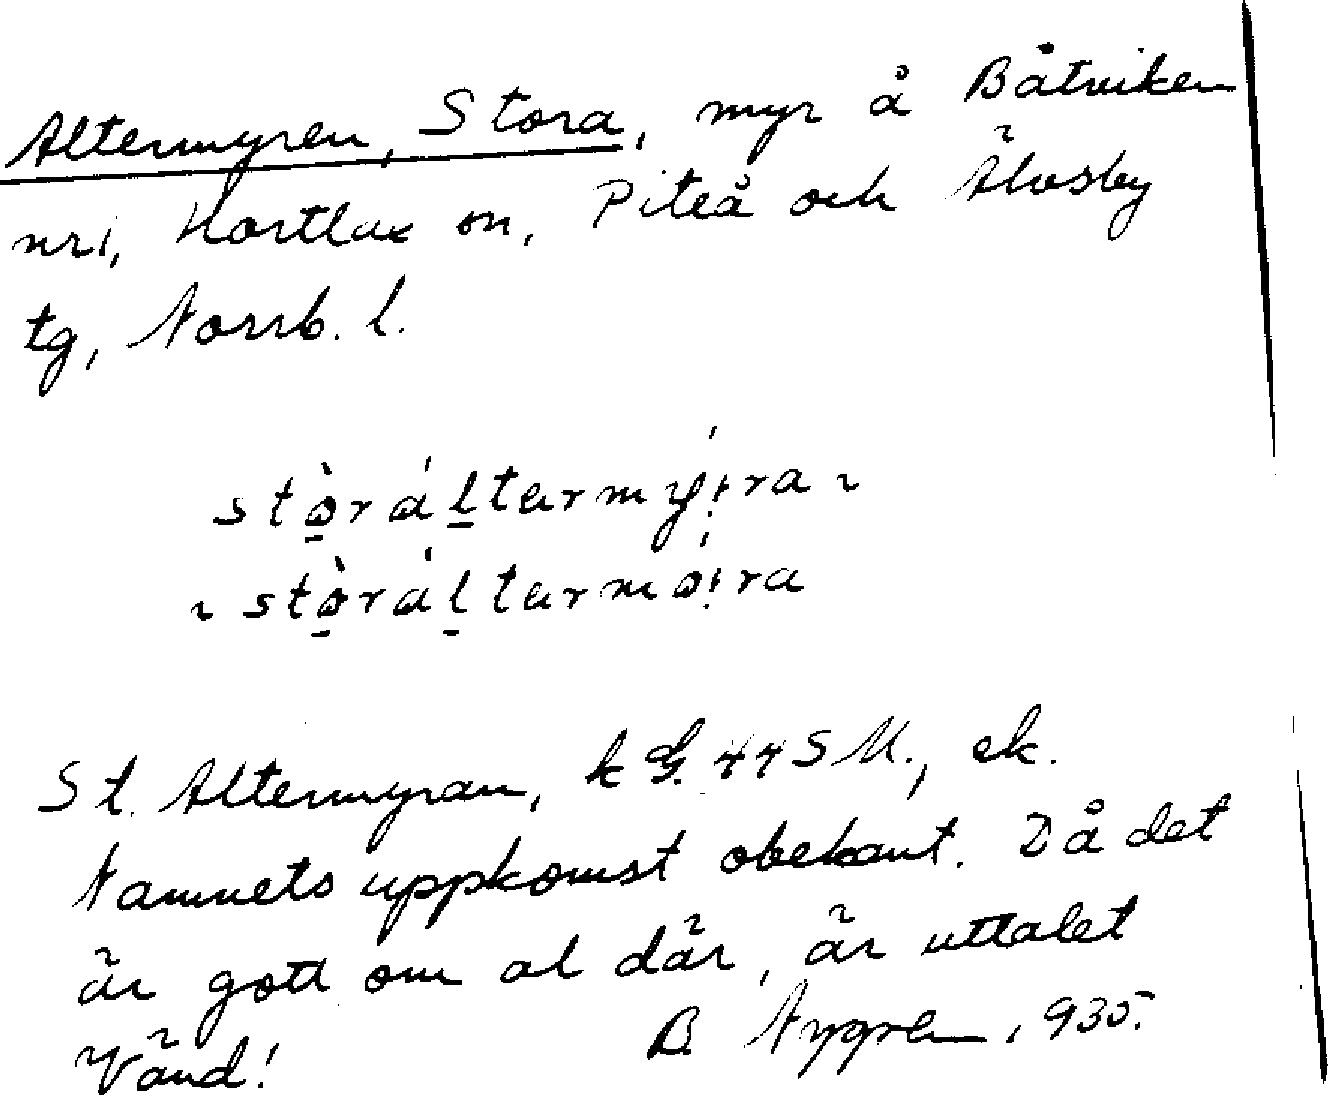 Altermyren, Stora, myr å Båtviken
nr 1, Hortlax sn, Piteå och Älvsby
tg, Norrb. l.
stò̱ráḻtarmý:ra ~
~ stò̱ráḻtarmǿ:ra
St. Altermyran, k G. 44 SM., ek.
Namnets uppkomst obekant. Då det
är gott om al där, är uttalet
Vänd! B. Nygren, 1935.